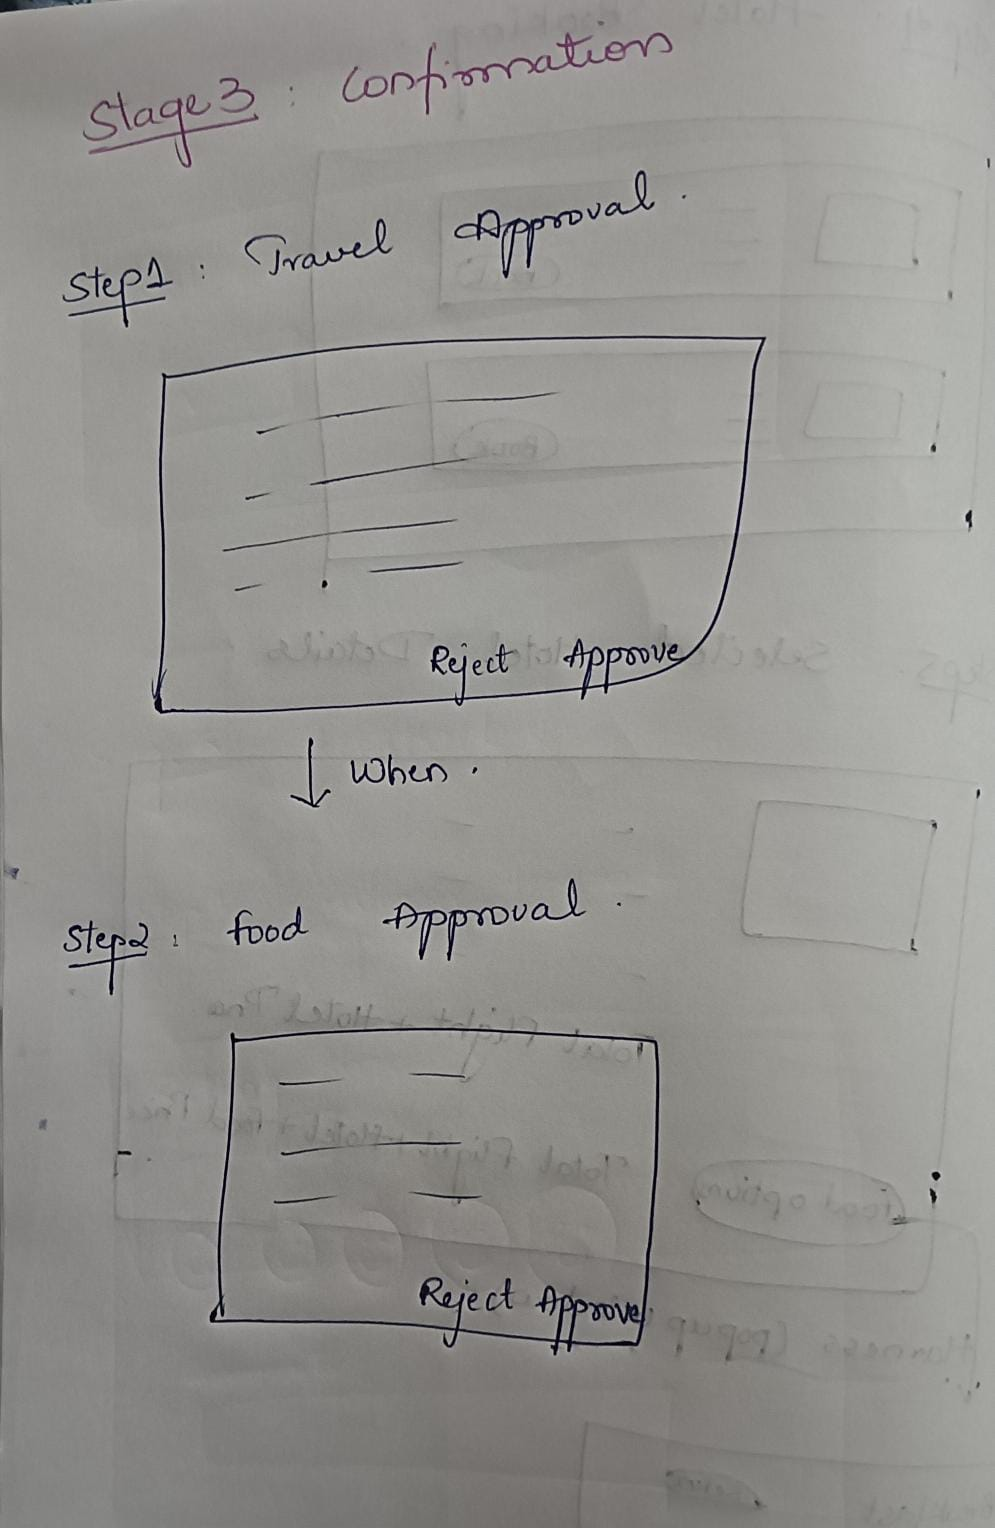 Stage 3 : Confirmation
Step1 : Travel Approval.
Reject Approve
When.
Step2 : food Approval.
Reject Approve